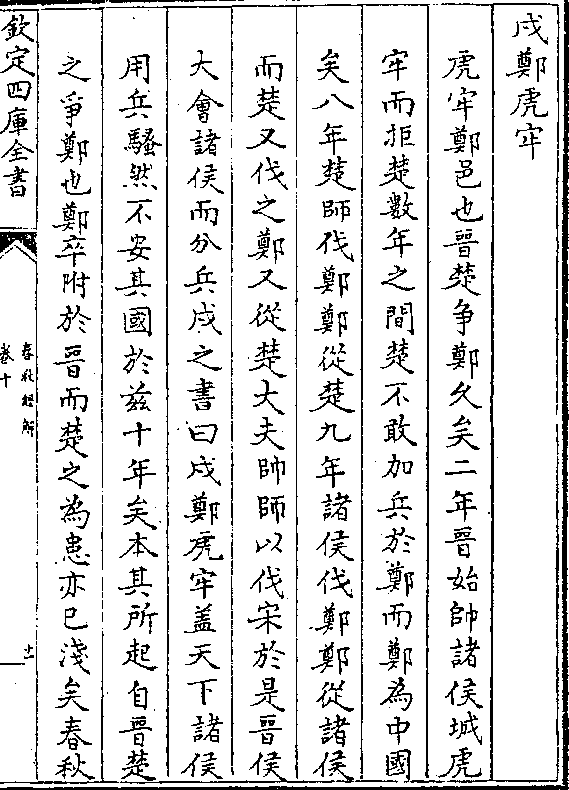 戍鄭虎牢
虎牢鄭邑也晉楚争鄭久矣二年晉始帥諸侯城虎
牢而拒楚數年之間楚不敢加兵於鄭而鄭為中國
矣八年楚師伐鄭鄭從楚九年諸侯伐鄭鄭從諸侯
而楚又伐之鄭又從楚大夫帥師以伐宋於是晉侯
大會諸侯而分兵戍之書曰戍鄭虎牢盖天下諸侯
用兵騷然不安其國於兹十年矣本其所起自晉楚
之爭鄭也鄭卒附於晉而楚之為患亦已淺矣春秋
欽定四庫全書
春秋經解
卷十
十一